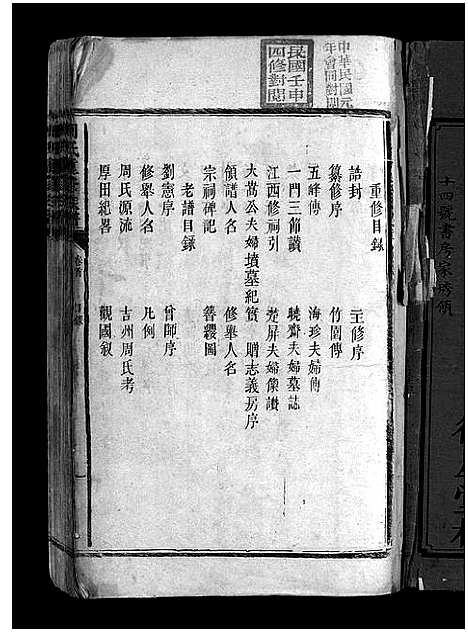 中華民國元
年會同對閱
民國壬申
四修對閱
重修目錄
誥封 主修序
纂修序 竹園傳
五峰傳 海珍夫婦傳
一門三節讚 曉齋夫婦墓誌
江西修祠引 楚屏夫婦像讚
大嵩公夫婦墳墓紀實 贈志義房序
領譜人名 修舉人名
宗祠碑記 簪纓圖
老譜目錄
劉憲序 曾師序
修舉人名 凡例
周氏源流 古州周氏考
厚田紀畧 觀國敘
十四號書房家琇領